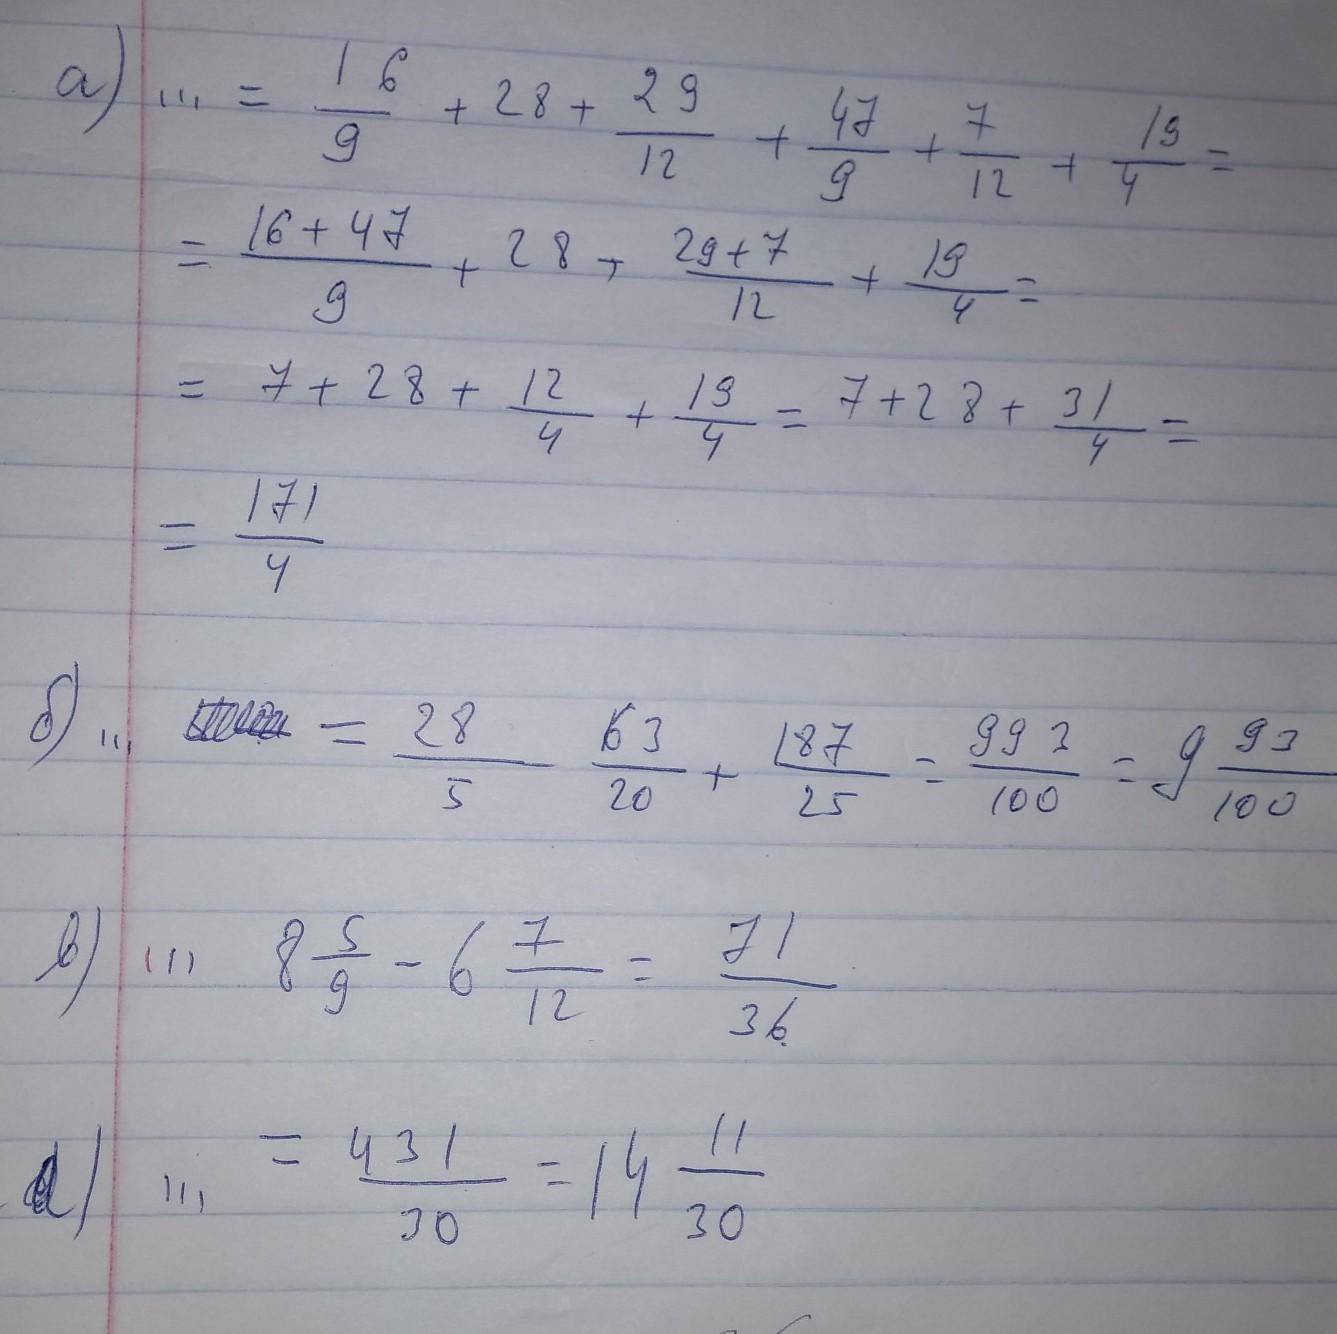 а) ... = 16/9 + 28 + 29/12 + 47/9 + 7/12 + 19/4 =
= (16+47)/9 + 28 + (29+7)/12 + 19/4 =
= 7 + 28 + 12/4 + 19/4 = 7 + 28 + 31/4 =
= 171/4
б) ... = 28/5 63/20 + 187/25 = 993/100 = 9 93/100
в) ... 8 5/9 - 6 7/12 = 71/36
d) ... = 431/30 = 14 11/30